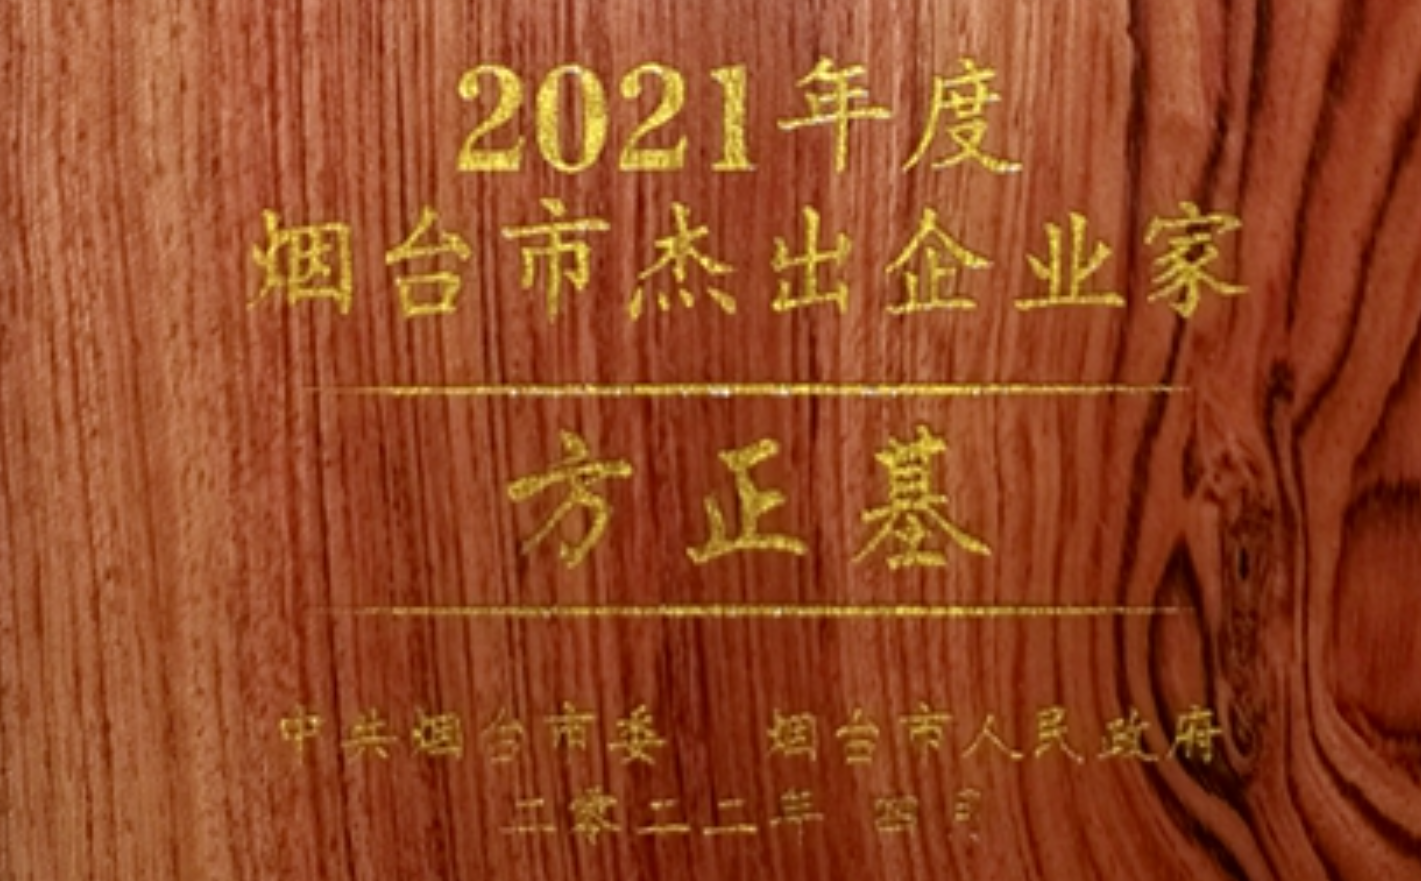 2021年度
烟台市杰出企业家
方正基
中共烟台市委 烟台市人民政府
二零二二年 四月